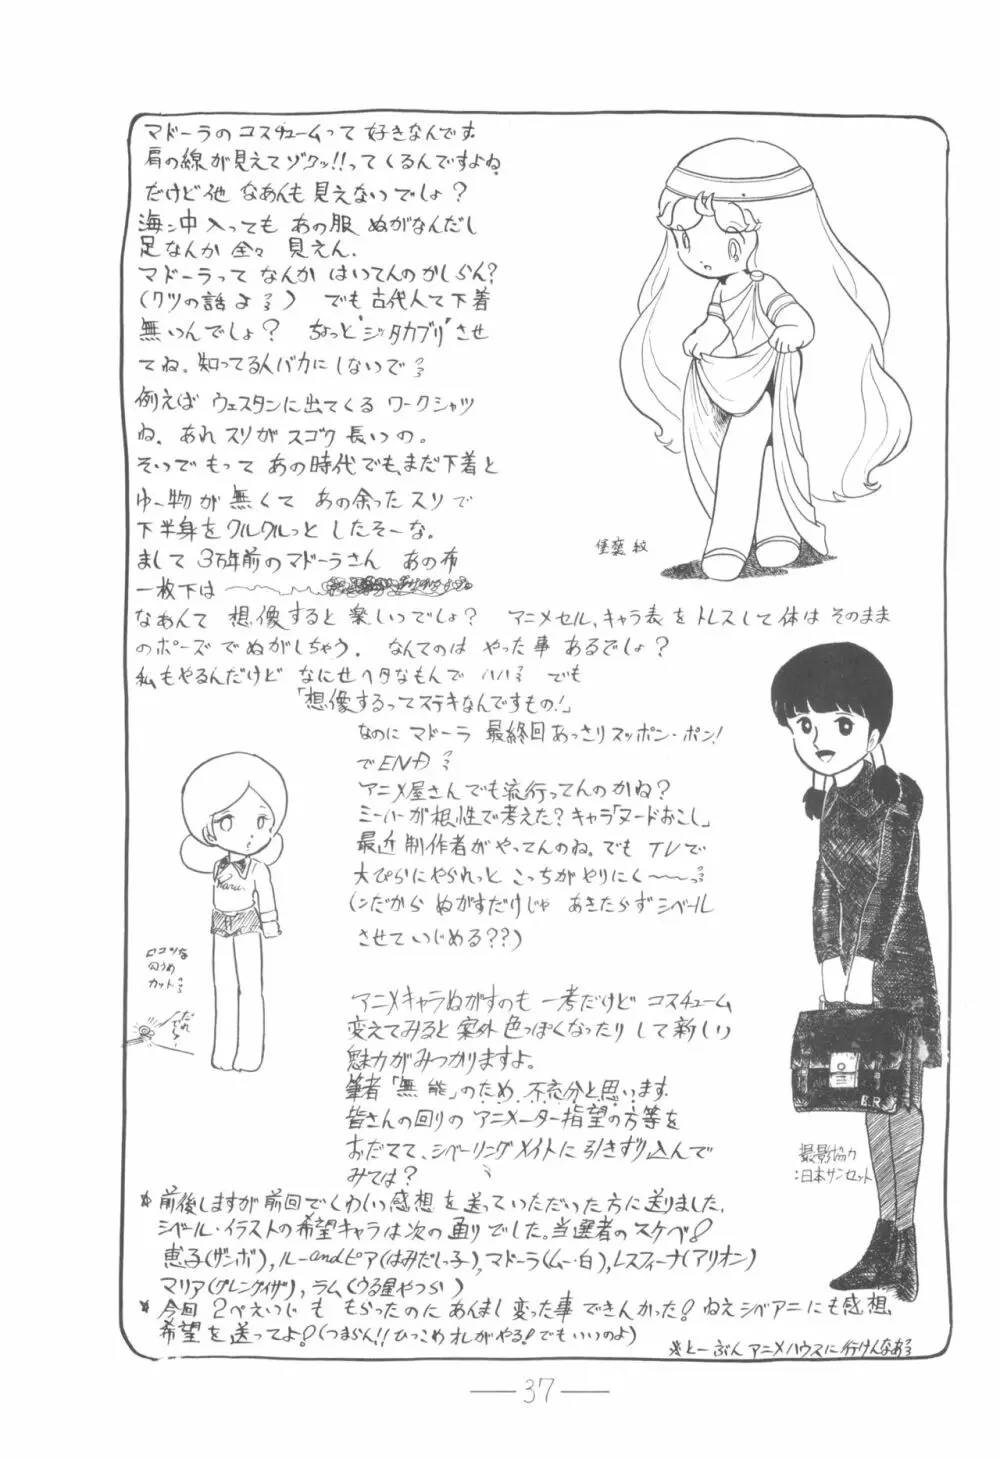 マドーラのコスチュームって好きなんです。
肩の線が見えてゾクッ!!ってくるんですよね。
だけど他 なあんも見えないでしょ？
海ン中入っても あの服 ぬがなんだし
足なんか全々 見えん.
マドーラって なんか はいてんのかしらん？
(クツの話よ) でも古代人て下着
無いんでしょ？ ちょっと"シッタカブリ"させ
てね。知ってる人バカにしないで
例えば ウェスタンに出てくる ワークシャツ
ね. あれ スソが スゴク 長いの。
そいでもって あの時代でも、まだ下着と
ゆー物が 無くて あの余ったスソで
下半身をクルクルっと したそーな。
まして 3万年前のマドーラさん あの布
一枚下は
なあんて 想像すると 楽しいでしょ？ アニメセル、キャラ表をトレスして体はそのまま
のポーズでぬがしちゃう. なんてのは やった事 あるでしょ？
私もやるんだけど なにせヘタなもんで ハハ でも
「想像するってステキなんですもの!」
なのに マドーラ 最終回あっさりスッポン・ポン!
でEND
アニメ屋さんでも流行ってんのかね？
ミーハーが根性で考えた？キャラ「ヌードおこし」
最近 制作者がやってんのね。でも TVで
大ぴらにやられっと こっちがやりにく〜〜っ
(だから ぬがすだけじゃ あきたらずシベール
させていじめる??)
アニメキャラぬがすのも 一考だけど コスチューム
変えてみると 案外 色っぽくなったりして新しい
魅力がみつかりますよ。
筆者「無能」のため、不充分と思います.
皆さんの回りの アニメーター指望の方等を
おだてて、シベーリングメイトに引きずり込んで
みては？
* 前後しますが前回でくわしい感想を送っていただいた方に送りました.
シベール・イラストの希望キャラは次の通りでした。当選者のスケベ!
恵子(ザンボ), ルーandピア(はみだしっ子), マドーラ(ムー・白), レスフィーナ(アリオン)
マリア(グレンダイザ), ラム(うる星やつら)
* 今回 2ペえじも もらったのに あんまし変った事できんかった! ねえシベアニにも感想、
希望を送ってよ!(つまらん!!ひっこめオレがやる!でもいいのよ)
※とーぶん アニメハウスに行けんなあ
Karu
ロコツな
カット
だれ
でぇ
撮影協力
:日本サンセット
B.R
37